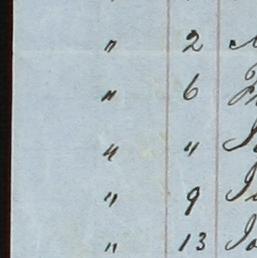 " 2
" 6
" "
" 9
" 13